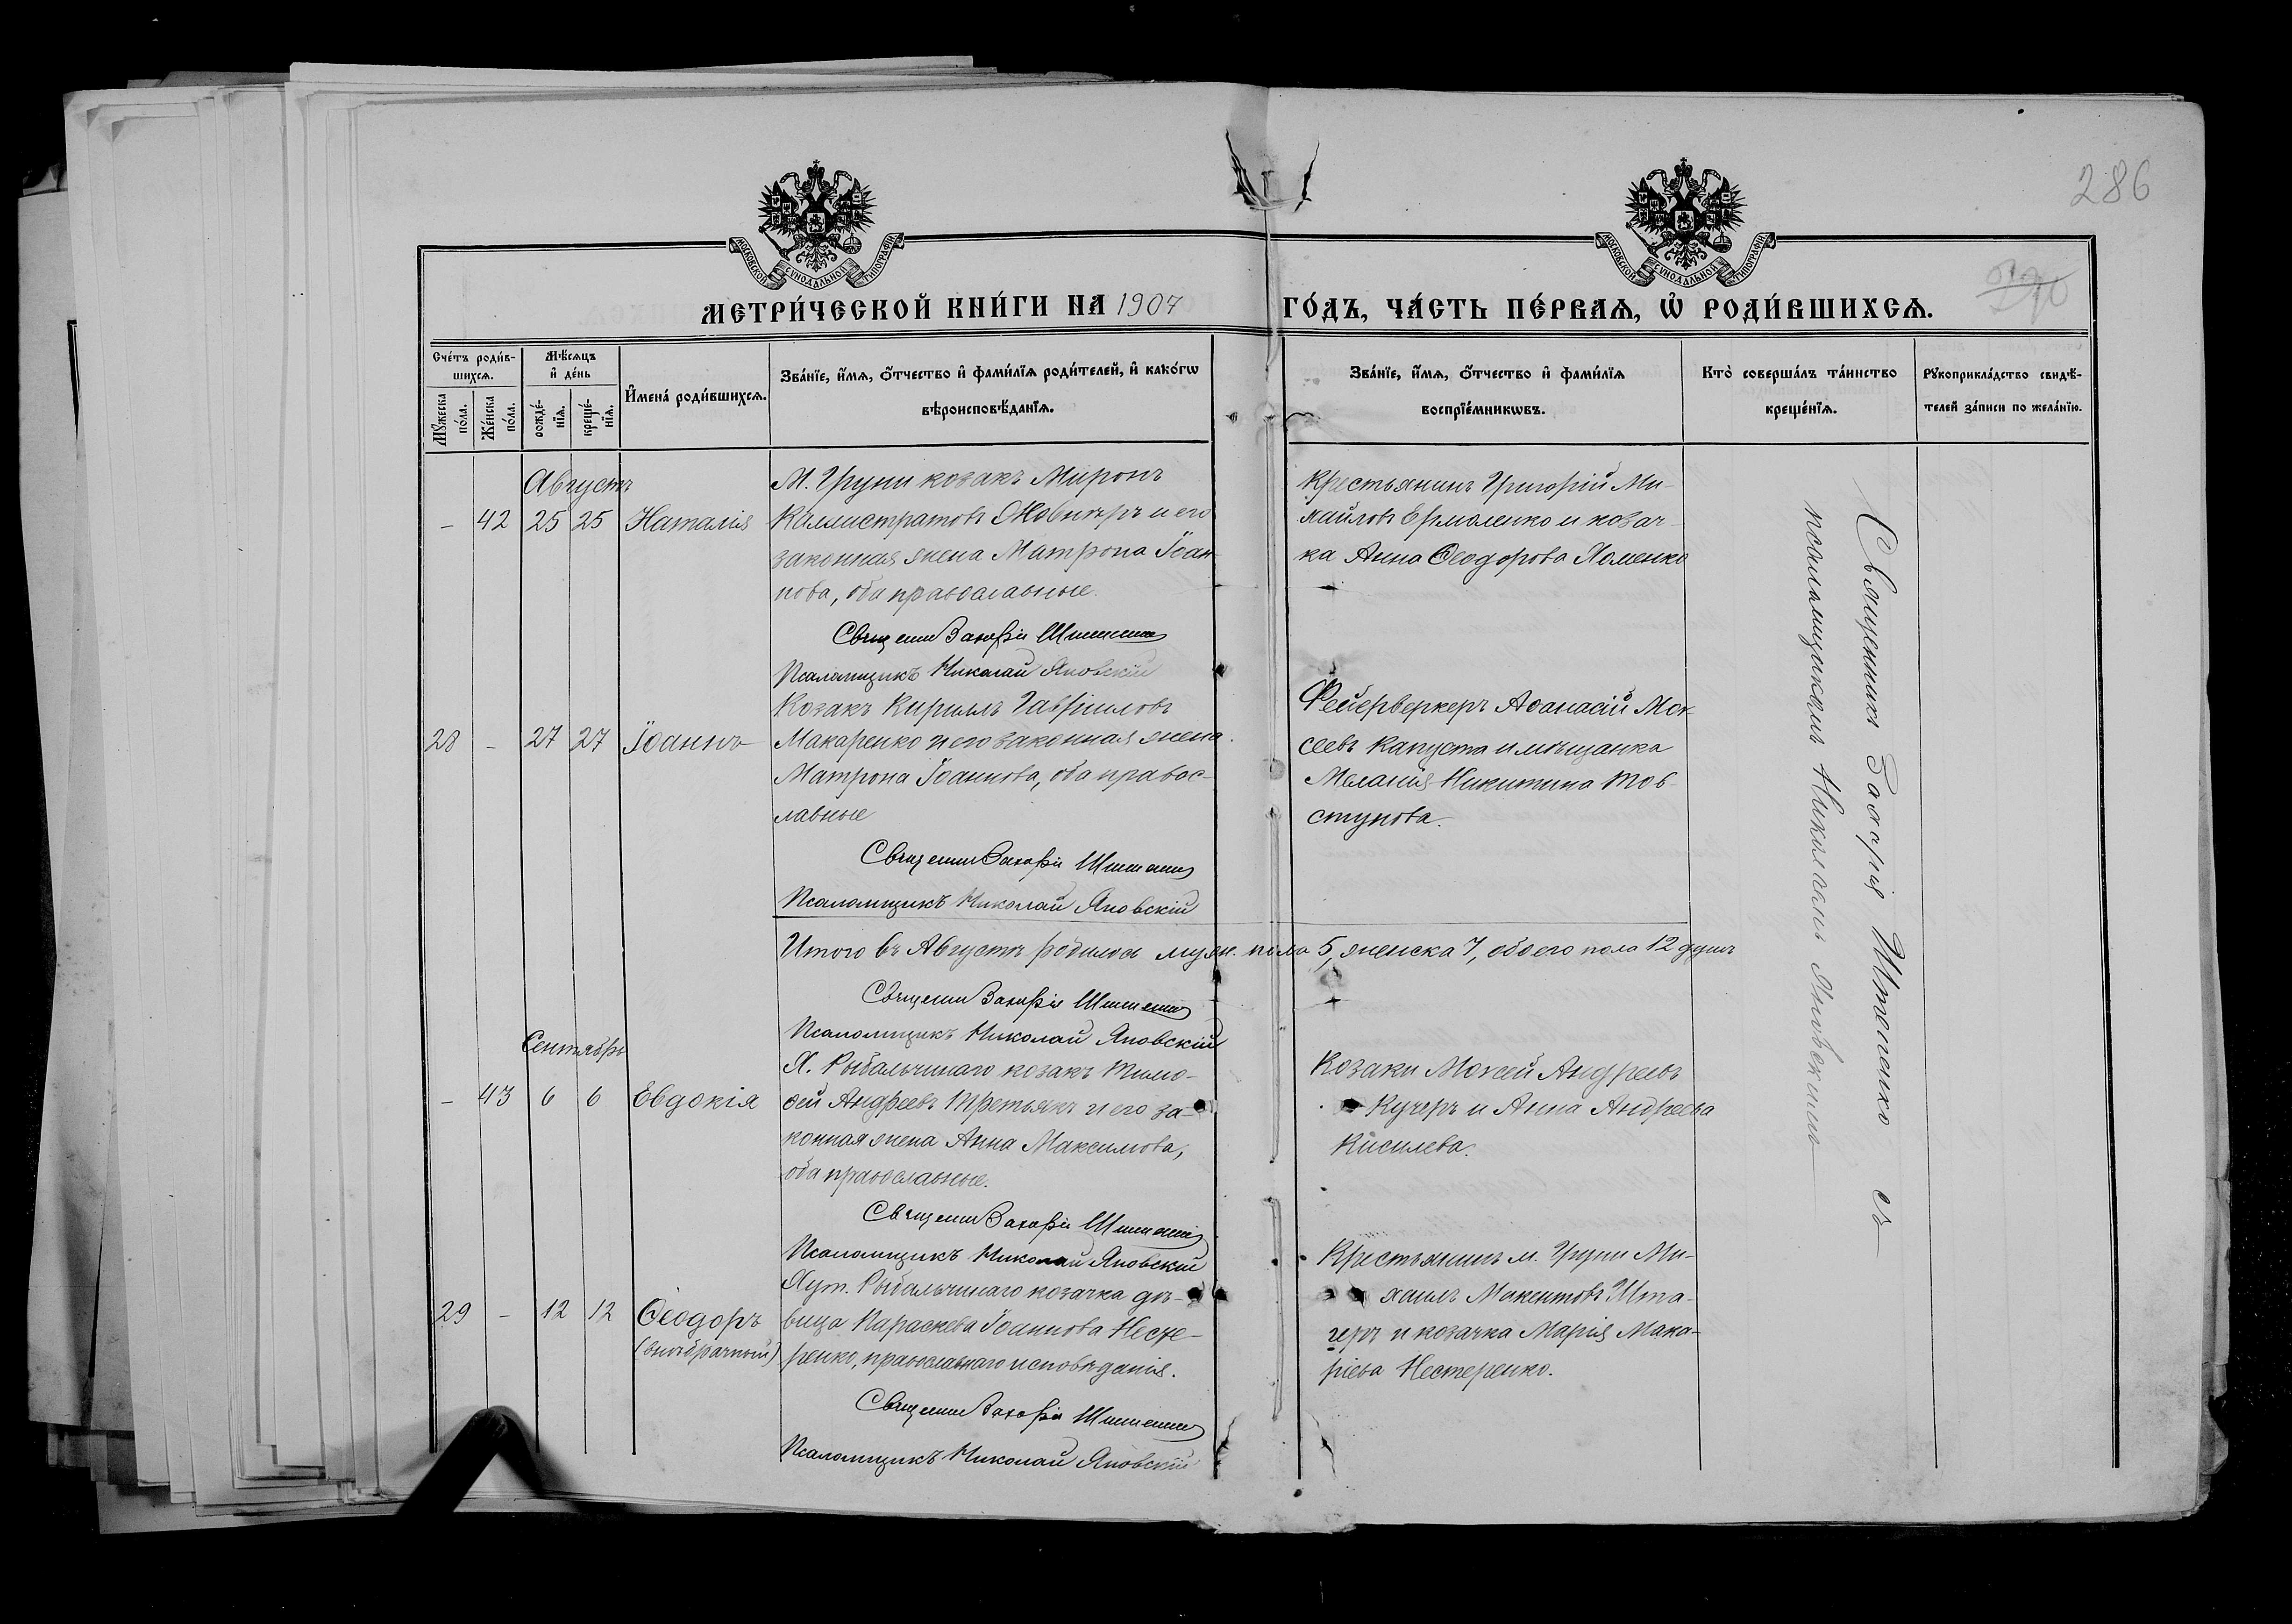 286
МОСКОВСКОЙ СѴНОДАЛЬНОЙ ТИПОГРАФІИ
МОСКОВСКОЙ СѴНОДАЛЬНОЙ ТИПОГРАФІИ
МЕТРИ́ЧЕСКОЙ КНИ́ГИ НА 1907 ГО́ДЪ, ЧА́СТЬ ПЕ́РВАѦ, Ѡ҆ РОДИ́ВШИХСѦ.
Сче́тъ роди́в-
шихсѧ.
Мꙋ́жеска по́ла.
Же́нска по́ла.
Мѣ́сѧцъ
и҆ де́нь
рожде́-
нїѧ.
креще́-
нїѧ.
И҆мена̀ роди́вшихсѧ.
Зва́нїе, и҆́мѧ, ѻ҆́тчество и҆ фами́лїѧ роди́телей, и҆ како́гѡ
вѣроисповѣ́данїѧ.
Зва́нїе, и҆́мѧ, ѻ҆́тчество и҆ фами́лїѧ
воспрїе́мникѡвъ.
Кто̀ соверша́лъ та́инство
креще́нїѧ.
Рꙋкоприкла́дство свидѣ́-
телей за́писи по жела́нїю.
Августъ
- 42 25 25 Наталія
М. Груни козакъ Миронъ
Каллистратовъ и его
законная жена Матрона Іоан-
нова, оба православные.
Священ Захарій
Псаломщикъ Николай Яновскій
Крестьянинъ Григорій Ми-
хайловъ Ермоленко и козач-
ка Анна Ѳеодорова Хоменко
28 - 27 27 Іоаннъ
Козакъ Кириллъ Гавріиловъ
Макаренко и его законная жена
Матрона Іоаннова, оба правос-
лавные
Священ Захарій
Псаломщикъ Николай Яновскій
Фейерверкеръ Аѳанасій Мок-
сеевъ Капуста и мѣщанка
Меланія Никитина Тов-
стунова.
Итого въ Августѣ родилось муж. пола 5, женска 7, обоего пола 12 душъ
Священ Захарій
Псаломщикъ Николай Яновскій
Сентябрь
- 43 6 6 Евдокія
Х. Рыбальчинаго козакъ Тимо-
ѳей Андреевъ Третьякъ и его за-
конная жена Анна Максимова,
оба православные.
Священ Захарій
Псаломщикъ Николай Яновскій
Козаки Мокей Андреевъ
Кучеръ и Анна Андреева
Кисилева.
29 - 12 12 Ѳеодоръ
(внебрачный)
Хут. Рыбальчинаго козачка дѣ-
вица Параскева Іоаннова Несте-
ренко, православнаго исповѣданія.
Священ Захарій
Псаломщикъ Николай Яновскій
Крестьянинъ м. Груни Ми-
хаилъ Макситовъ Шта-
геръ и козачка Марія Мака-
ріева Нестеренко.
Священникъ Захарія съ
псаломщикомъ Николаемъ Яновскимъ